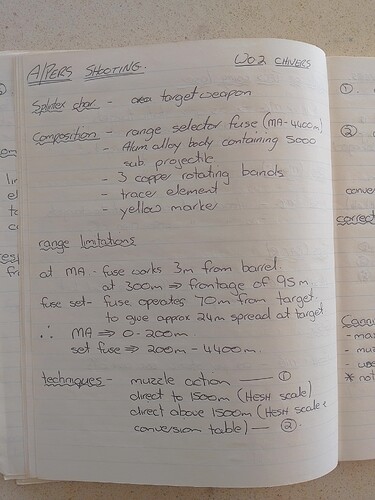 A/PERS SHOOTING. WO2 CHIVERS
Splintex char - area target weapon
Composition - range selector fuse (MA-4400m)
- Alum alloy body containing 5000
sub projectile
- 3 copper rotating bands
- tracer element
- yellow marker
range limitations
at MA - fuse works 3m from barrel.
at 300m ⇒ frontage of 95m.
fuse set - fuse operates 70m from target
to give approx 24m spread at target
∴ MA ⇒ 0-200m.
set fuse ⇒ 200m - 4400m.
techniques - muzzle action —— ①
direct to 1500m (HESH scale)
direct above 1500m (HESH scale &
conversion table) — ②.
①
②
conver
correct
* not